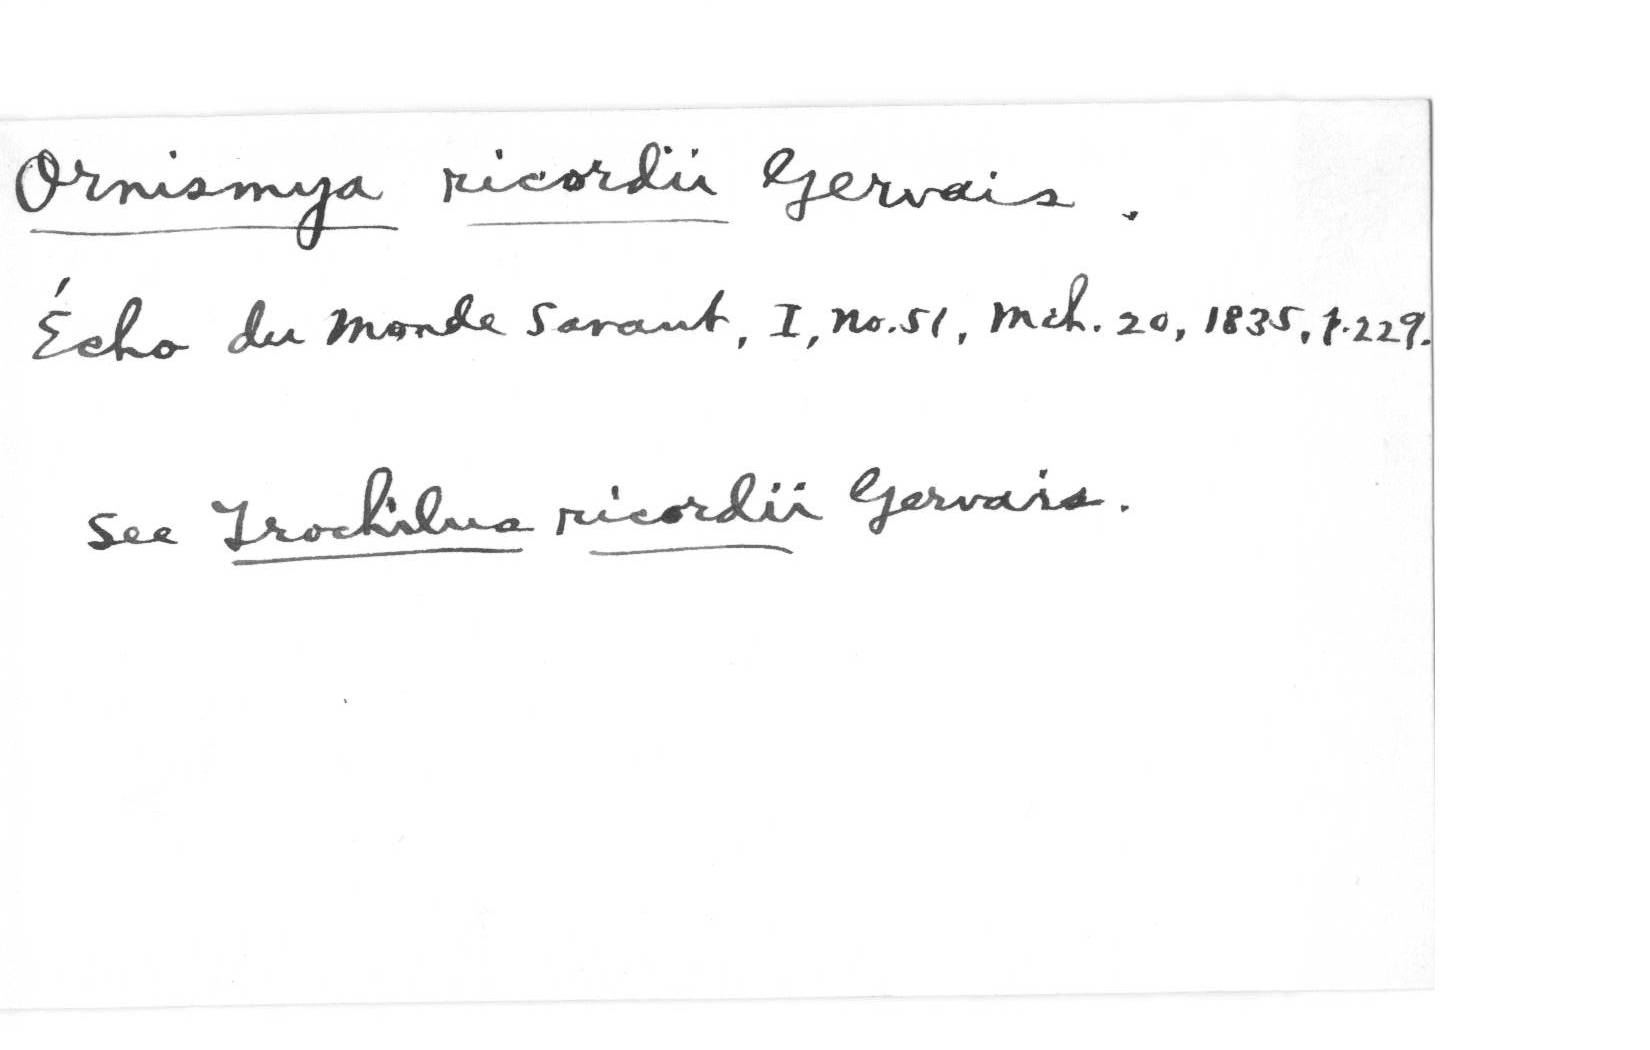 Ornismya ricordii Gervais.
Écho du Monde Savant, I, no. 51, Mch. 20, 1835, p. 229.
See Trochilus ricordii Gervais.